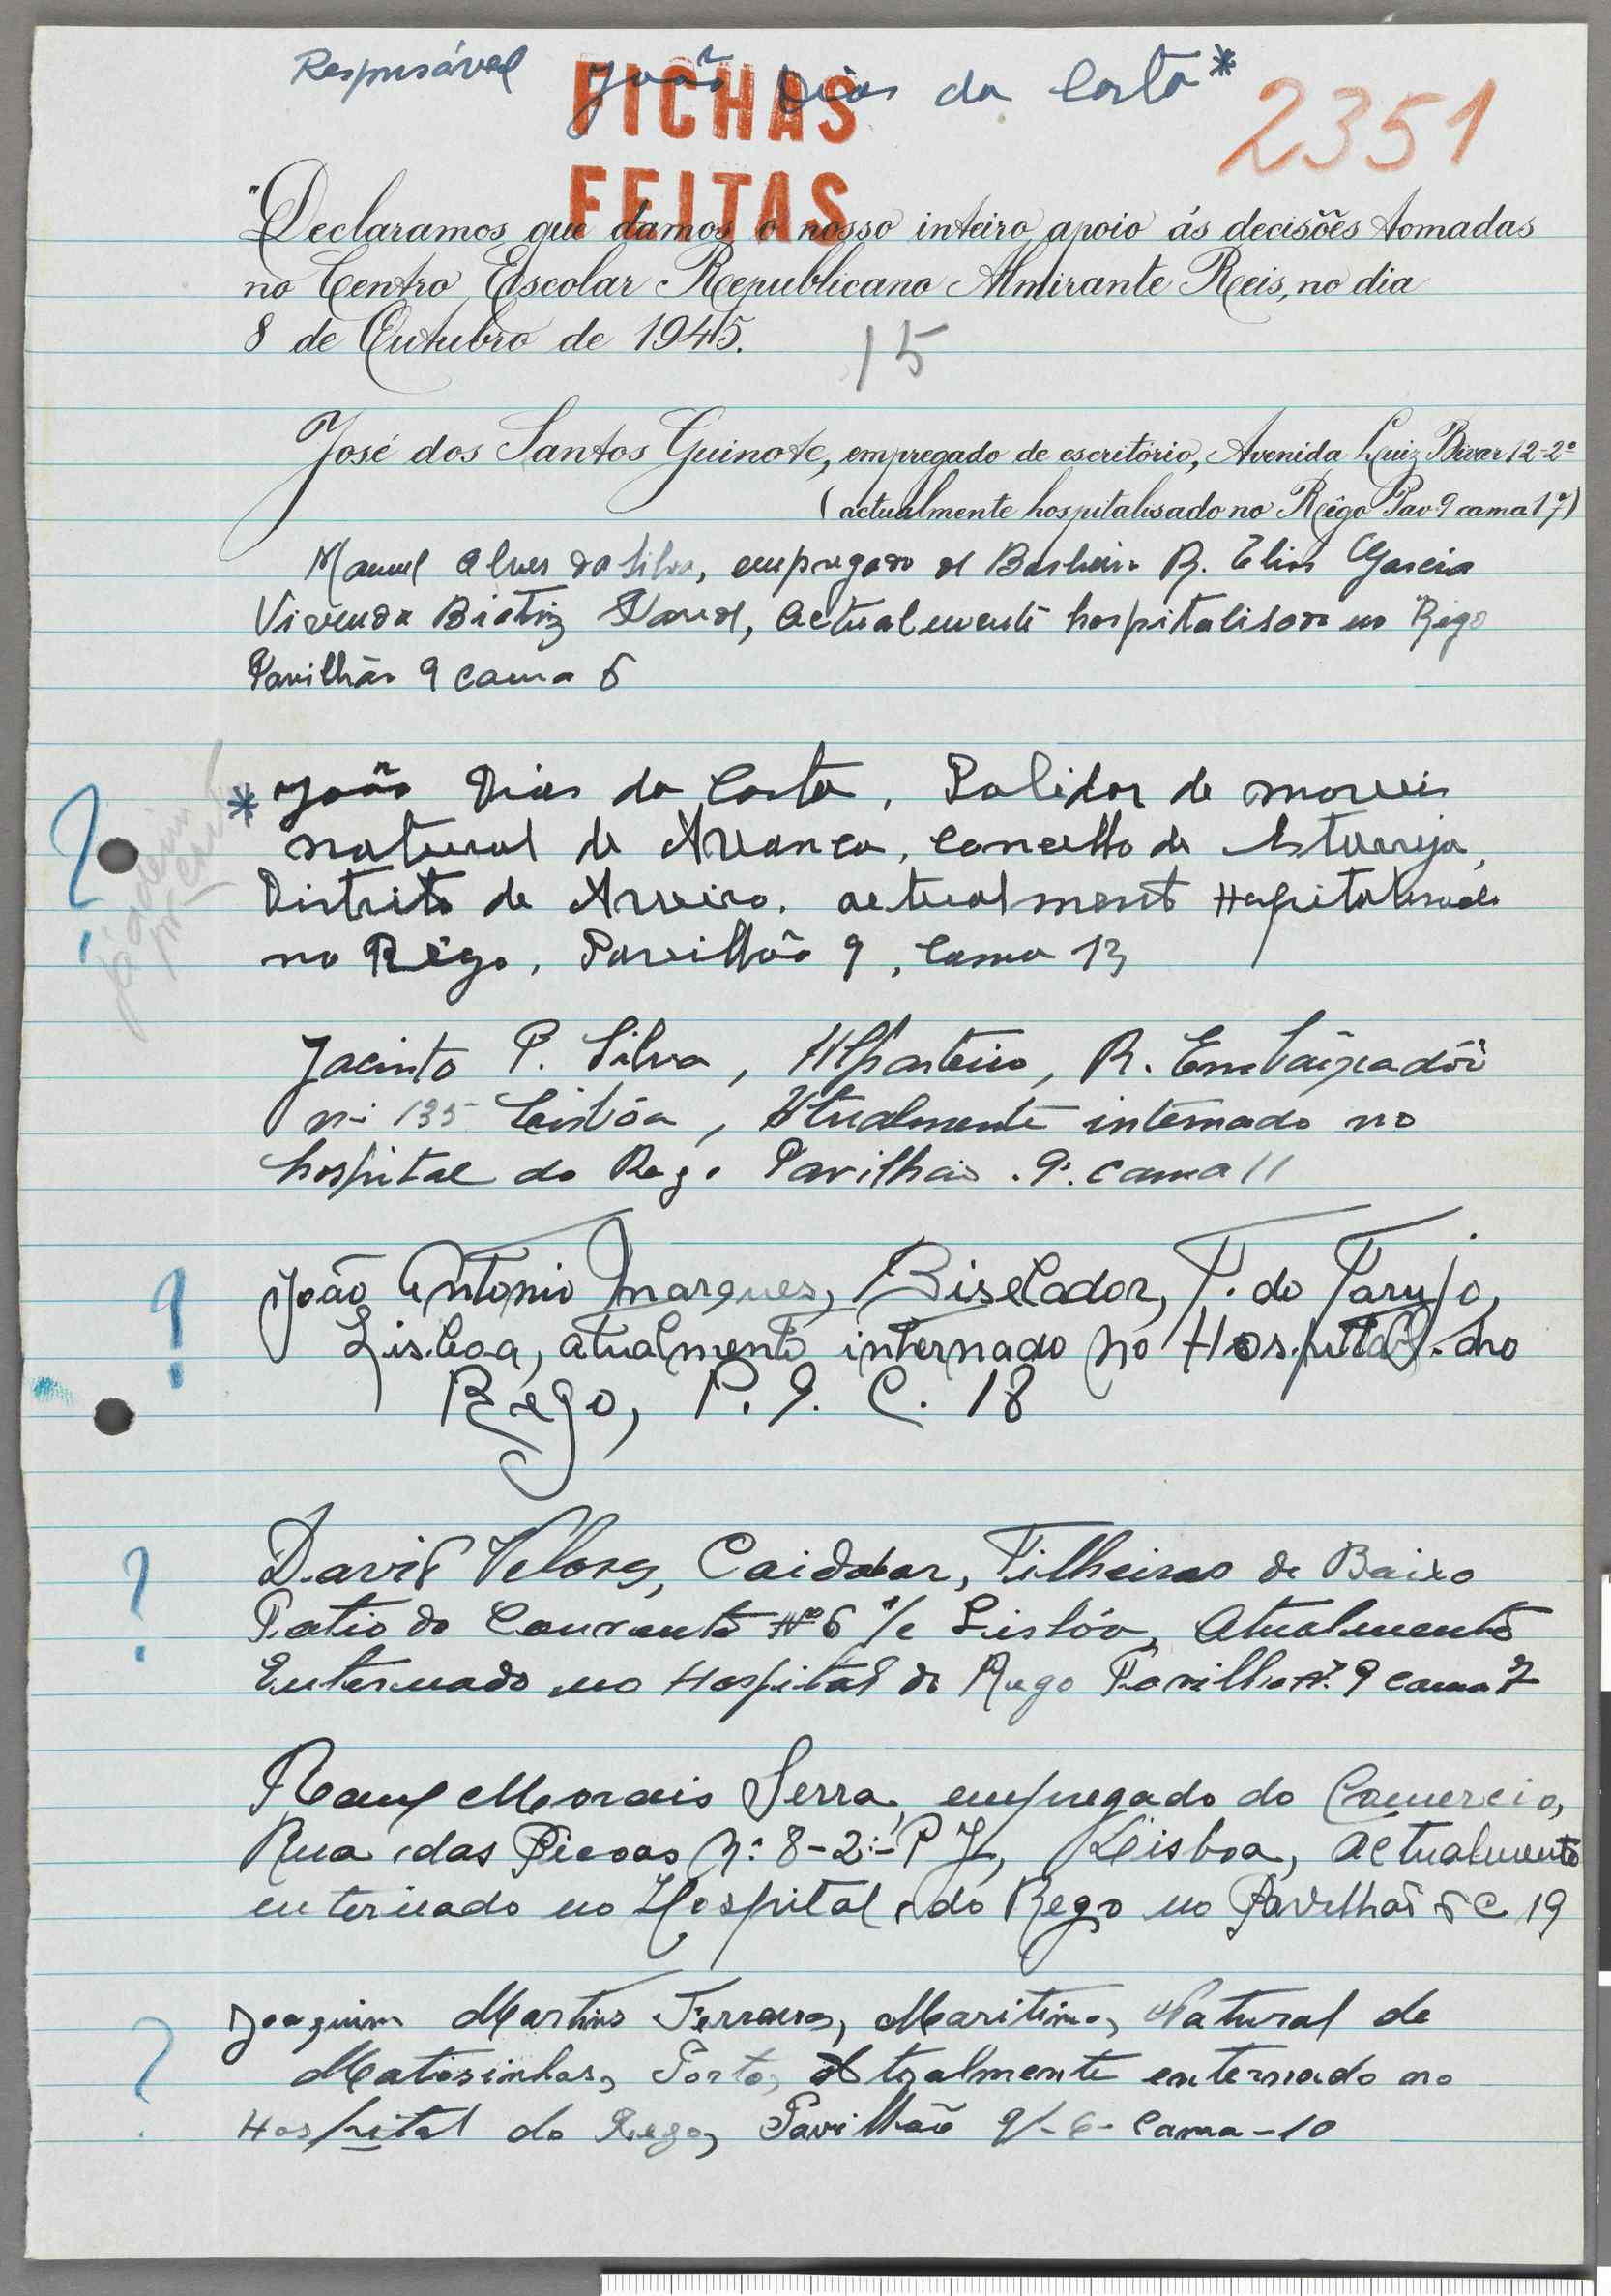 Responsável João Dias da Costa*
FICHAS
FEITAS
2351
"Declaramos que damos o nosso inteiro apoio ás decisões tomadas
no Centro Escolar Republicano Almirante Reis, no dia
8 de Outubro de 1945.
15
José dos Santos Guinote, empregado de escritório, Avenida Luiz Bivar 12-2º
(actualmente hospitalisado no Rêgo Pav. 9 cama 17)
Manuel Alves da Silva, empregado de R. Elias Garcia
Vivenda Biatriz actualmente hospitalisado no Rego
Pavilhão 9 cama 5
* João Dias da Costa, Polidor de moveis
natural de Avanca, concelho de Estarreja,
Distrito de Aveiro. actualment Hospitalisado
no Rêgo, Pavilhão 9, Cama 13
já aderiu
Jacinto P. Silva, R. Embaixadôr
nº 135 Lisbôa, Atualmente internado no
hospital do Rego Pavilhão 9º. cama 11
João Antonio Marques, Biselador, T. do Tarujo,
Lisboa, atualmente internado no Hospital do
Rego, P. 9. C. 18
David Veloso, Caiador, Tilheiras de Baixo
Patio do Convento Nº 6 r/c Lisbôa, Atualmente
Enternado no Hospital do Rego Pavilhão 9 cama 7
Raul Morais Serra, empregado do Comercio,
Rua das Picoas Nº 8-2º- Lisboa, actualmente
enternado no Hospital do Rego no Pavilhão C 19
Joaquim Martins Ferreira, Maritimo, Natural de
Matosinhos, Porto, Atualmente enternado no
Hospital do Rego, Pavilhão 9 Cama-10